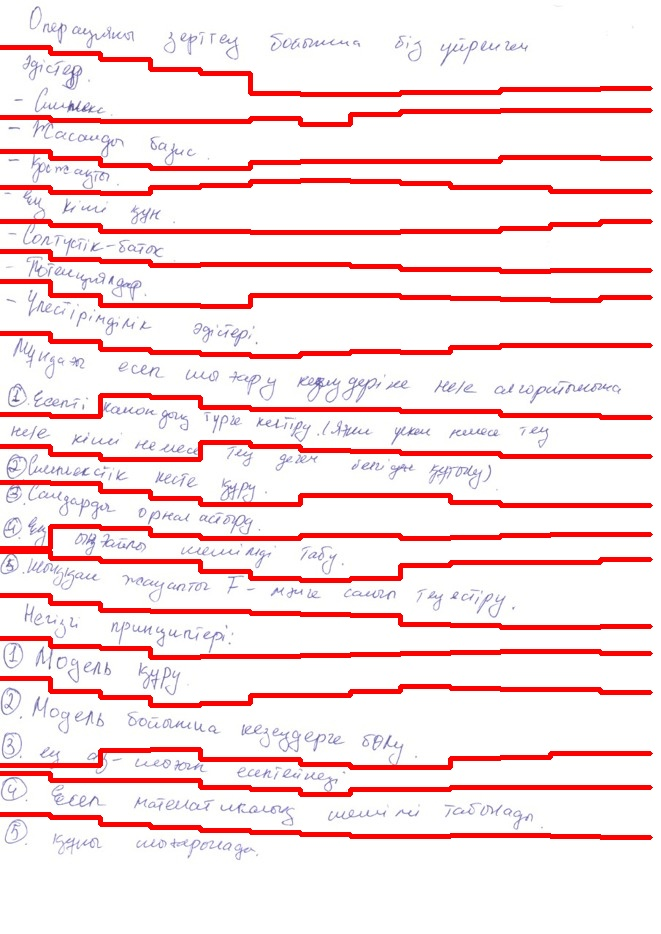 Операцияны зерттеу бойынша біз үйренген
әдістер.
- Симплекс.
- Жасанды базис.
- Қосжақты.
- Ең кіші құн.
- Солтүстік-батыс
- Потенциялдар.
- Үлестірімділік әдістері.
Мұндағы есеп шығару кезеңдеріне неге алгоритмына
① Есепті канондық түрге келтіру. (Яғни үлкен немесе тең
неге кіші немесе тең деген белгіден құтылу)
② Симплекстік кесте құру.
③ Сандарды орналастыру.
④ Ең ыңғайлы шешімді табу.
⑤ Шыққан жауапты F - мәніге салып теңестіру.
Негізгі принциптері:
① Модель құру.
② Модель бойынша кезеңдерге бөлу.
③ ең аз-шығын есептейнеді
④ Есеп математикалық шешімі табылады.
⑤ құны шығарылады.